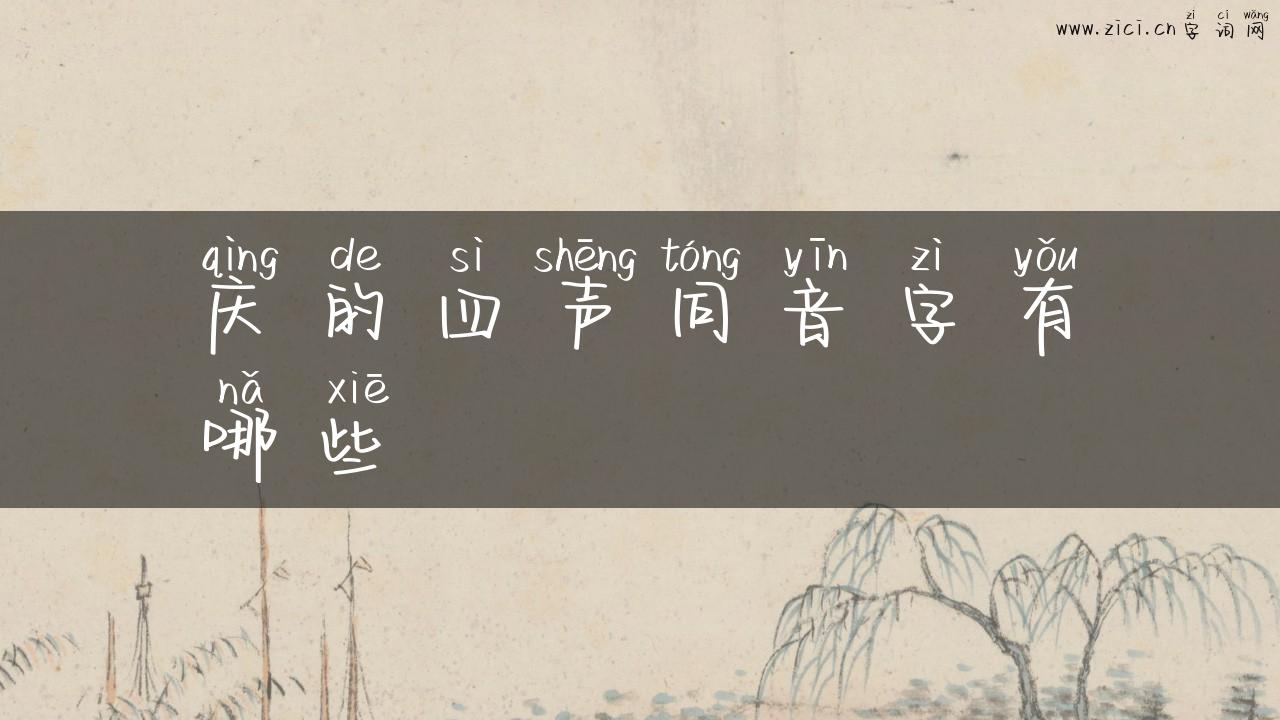 zì cí wǎng
www.zici.cn 字 词 网
qìng de sì shēng tóng yīn zì yǒu
庆 的 四 声 同 音 字 有
nǎ xiē
哪 些